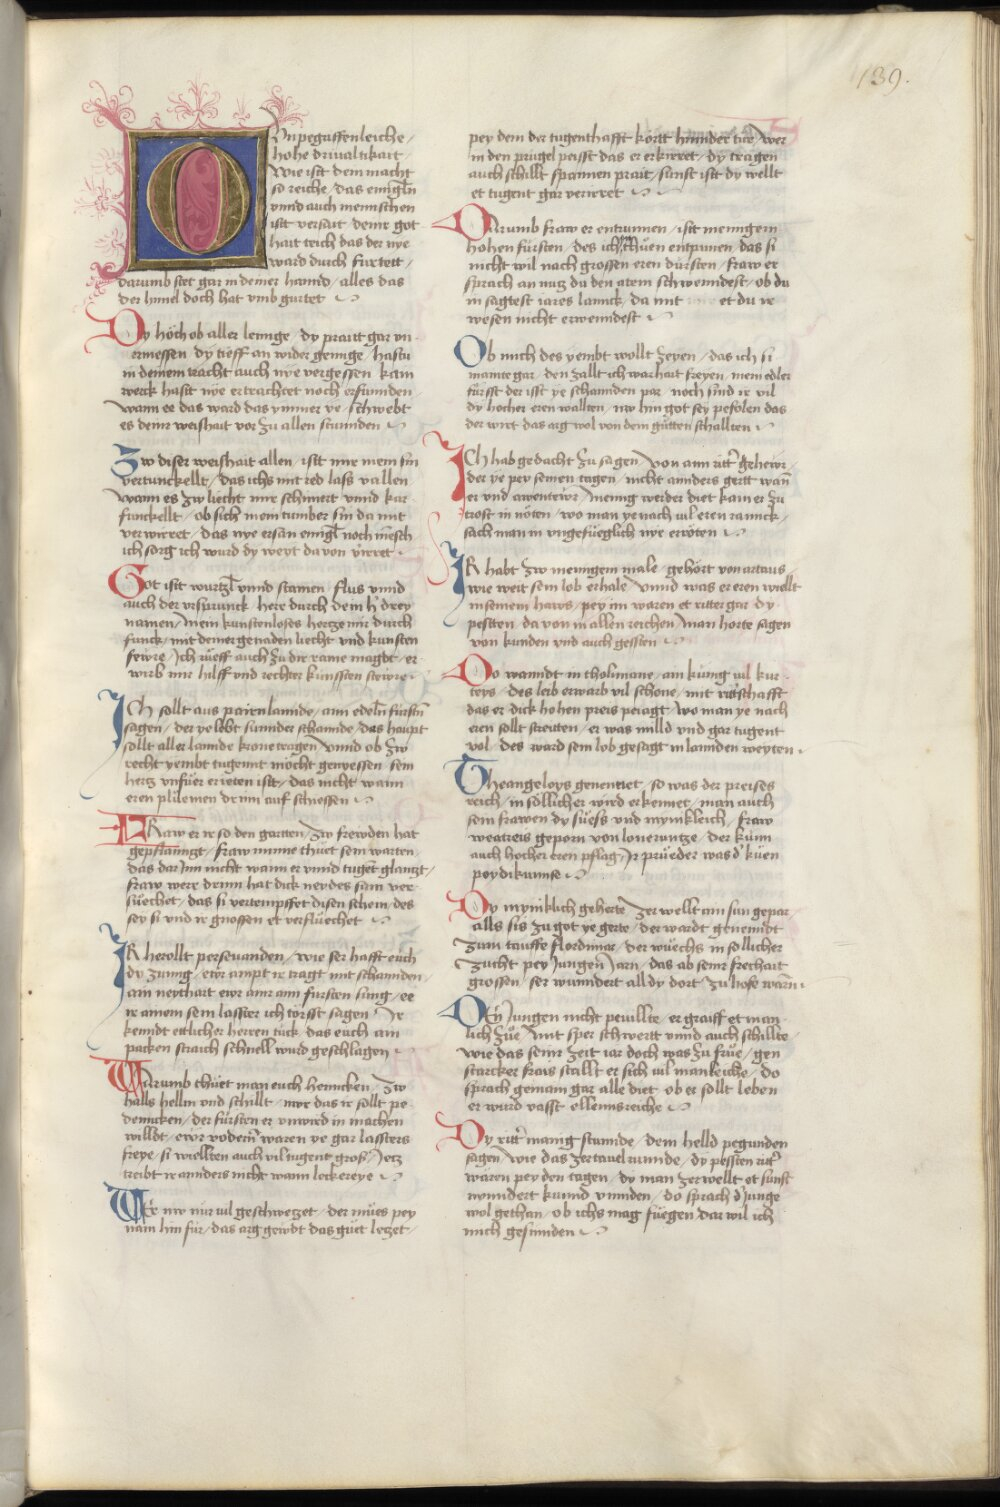 139.
On pegaffenleiche /
hohe drivaltikait /
Wie ist dein macht
so reiche / das enngln
vnnd auch mennschen
ist versait / deine got
hait reich das der nye
ward durch furtett /
darumb stet gar in deiner hannd / alles das
der himel doch hat vmb gurtet
Dy höch ob aller lennge / dy prait gar vn
ermessen / dy tieff an wider genge / hastu
in deinem tracht auch nye vergessen / kain
werck hastt nye ertrachtet noch erfunnden
Wann ee das ward das ymmer ye / schwebt
es deine weishait vor zu allen stunnden
Zw diser weishait allen / istt mir mein sin
vertunckellt / das ichs mit red lass vallen
Wann es zw liecht mir schimert vnnd kar
funckellt / ob sich mein tumber sin da mit
verwirret / das nye ersan enngl noch mensch
ich sorg ich wurd dy weyt da von virret
Got istt wurtzl vnnd stamen / flus vnnd
auch der vrsprunck / herr durch dein h drey
namen / Mein kunstenloses hertze mir durch
funck / mit deiner genaden liecht vnd kunsten
fewre / Ich rüeff auch zu dir raine magdt / er
wirb mir hilff vnd rechter kunssten stewre
Ich sollt aus pairn lannde / ainn edeln fürstn
sagen / der ye lebt sunnder schannde / das haupt
sollt aller lannde krone tragen / Vnnd ob zw
recht yembt tugennt möcht genyessen / sein
hertz vnfür erieten istt / das nicht wann
eren plüemen dr inn auf schiessen
Fraw er ir so den gartten / zw frewden hat
gepflanngt / fraw minne thuet sein warten
das dar Inn nicht wann er vnnd tugent glanngt /
fraw were drinn hat dick neydes sam ver
süechet / das si vertempffet disen schein / des
sey si vnd ir gnossen et verflüechet
Ir herollt persevanden / wie ser hafft euch
dy zunng / ewr ampt ir tragt mit schannden
ain neythart ewr ainr ann fursten sung / ee
ir ainem sein lasster ich torsst sagen / Ir
kenndt ettlicher herren tück / das euch am
packen straich schnell wurd geschlagen
Warumb thüet man euch henncken / zw
halls hellm vnd schillt / nwr das ir sollt pe
denncken / der fürsten er vnwird in machen
willdt / ewr vodern waren ye gar lassters
freye / si wiellten auch vil tugent gros / Jetz
treibt ir annders nicht wann leckereye
Wer nw nür vil geschwetzet / der mües pey
nam hin für / das arg gewbt das güet letzet /
pey dem der tugenthafft kortt hinnder türe / wer
in den prugel peisst das er erkirret / dy tragen
auch schillt spannen prait / sunst istt dy wellt
et tugent gar verirret
Darumb fraw er entrunnen / istt mennigem
hohen fürsten / des ich Im thuen entpinnen / das si
nicht wil nach grossen eren dürsten / fraw er
sprach an nutz du den atem schwenndest / ob du
in sagtest iares lannck / da mit et du ir
wesen nicht erwenndest
Ob mich des yembt wollt zeyen / das ich si
mainte gar / den zallt ich warhait freyen / mein edler
fürsst der istt ye schannden par / noch sind ir vil
dy hocher eren wallten / nw hin got sey pefolen das
der wirt das arg wol von dem güetten schallten
Ich hab gedacht zu sagen / von ainn ritter gehewr /
der ye pey seinen tagen / nicht annders gertt wann
er vnd awentewr / Mennig werder diet kam er zu
trost in nöten / wo man ye nach vil eren rannck /
sach man in vngefüeglich nye erröten
Ir habt zw mennigem male / gehört von artaus
wie weit sein lob erhale / Vnnd was er eren wiellt
in seinem haws / pey im waren et ritter gar dy
pestten / da von in allen reichen / Man horte sagen
von kunden vnd auch gessten
Do wanndt in tholmane / ain künig vil kur
teys / des leib erwarb vil schone / mit rittschafft
das er dick hohen preis peiagt / Wo man ye nach
eren sollt streitten / er was milld vnd gar tugent
vol / des ward sein lob gesagt in lannden weyten
Theangeloys genennet / so was der preises
reich / in söllicher wird erkennet / man auch
sein frawen dy süess vnd mynikleich / fraw
weatreis geporn von loneruntze / der künn
auch hocher eren pflag / Ir prüeder was d' küen
poydikunnse
Dy mynklich geherte / zer wellt ain sun gepar /
alls sis zu got ye gerte / der wardt genenndt
zum tauffe flordimar / der wüechs in sollicher
zucht pey Jungen Jarn / das ab seinr frechait
grossen / ser wunndert all dy dort zu hofe warn
Den Jungen nicht pevillte / er graiff et man
lich zue / Mit sper schwertt vnnd auch schillte
wie das seinr zeit iar doch was zu früe / gen
starcker frais stallt er sich vil mankeiche / do
sprach gemain gar alle diet / ob er sollt leben
er wird vasst ellennsreiche
Dy ritter manig stunnde / dem helld pegunden
sagen / wie das zer tauelrunnde / dy pessten ritter
waren pey den tagen / dy man zer wellt et sunst
nynndert kunnd vinnden / do sprach d' Junge
wol gethan / ob ichs mag füegen dar wil ich
mich gesinnden